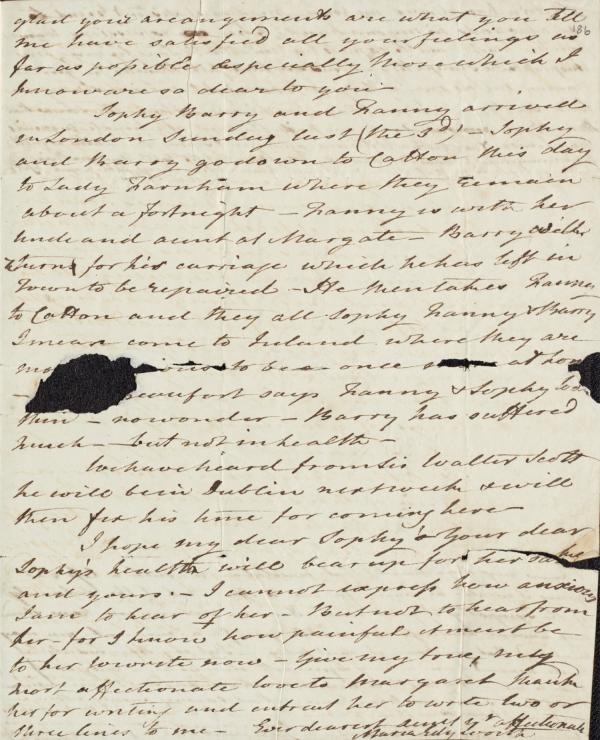 glad your arrangements are what you tell
86
me have satisfied all your feelings as
far as possible especially those which I
know are so dear to you
Sophy Barry and Fanny arrived
in London Sunday last (the 3d) - Sophy
and Barry go down to Catton this day
to Lady Farnham where they remain
about a fortnight - Fanny is with her
Uncle and aunt at Margate - Barry will
return for his carriage which he has left in
Town to be repaired - He then takes Fanny
to Catton and they all Sophy Fanny & Barry
I mean come to Ireland where they are
to be once at home
- Beaufort says Fanny & Sophy look
thin - no wonder - Barry has suffered
much - but not in health -
We have heard from Sir Walter Scott
he will be in Dublin next week & will
then fix his time for coming here
I hope my dear Sophy's & your dear
Sophy's health will bear up for her sake
and yours. - I cannot express how anxious
I am to hear of her - But not to hear from
her - for I know how painful it must be
to her to write now - Give my true, my
most affectionate love to Margaret thank
her for writing and entreat her to write two or
three lines to me - Ever dearest yr affectionate
Maria Edgeworth